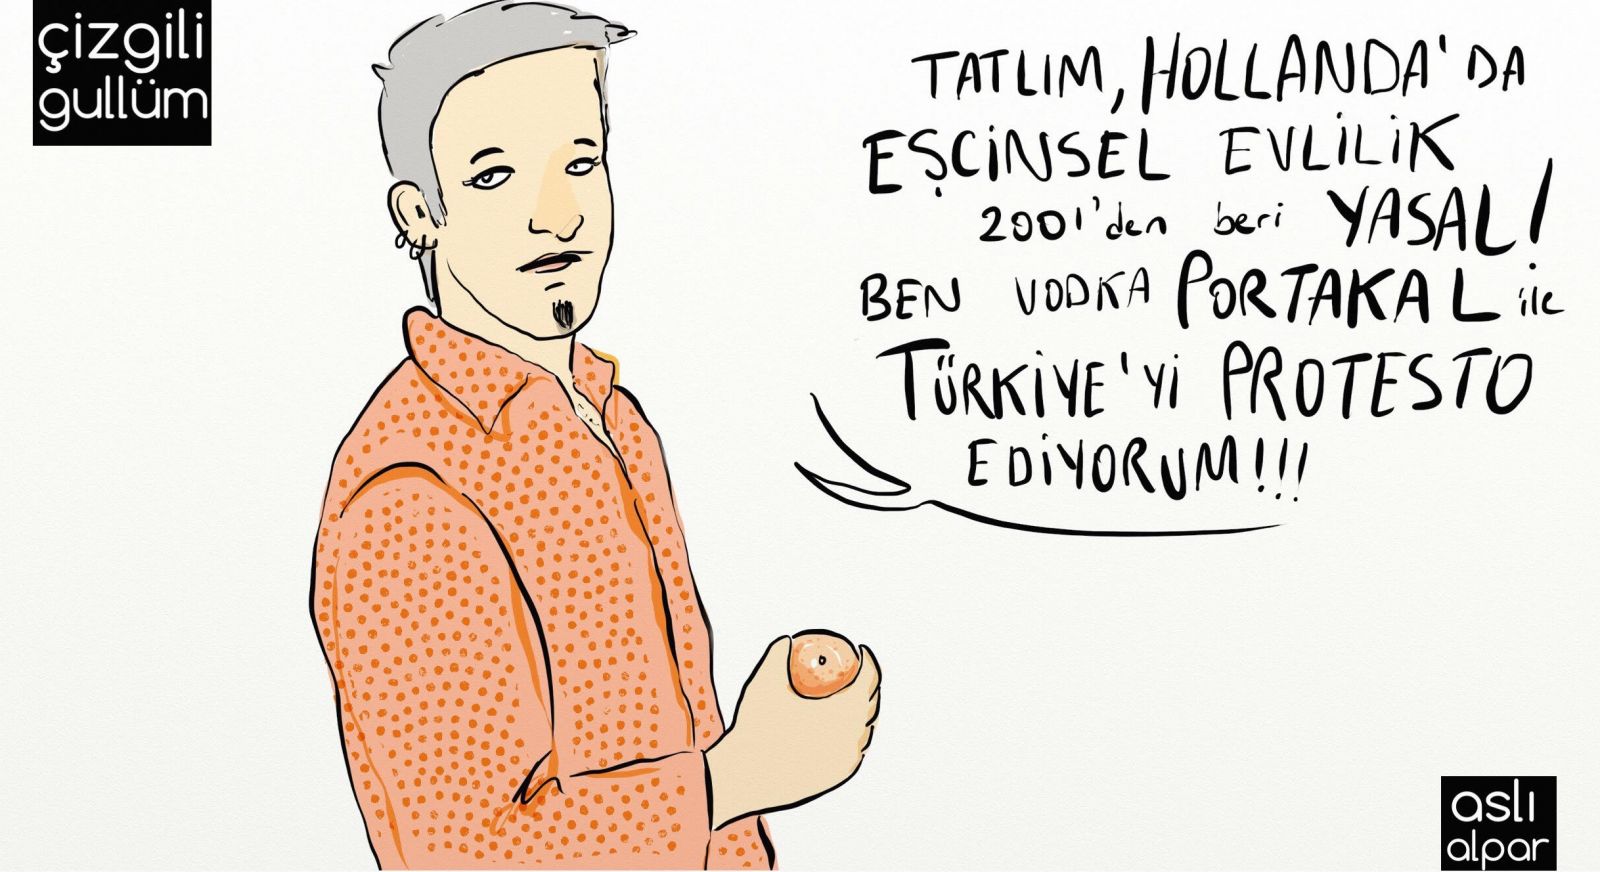 çizgili
gullüm
TATLIM, HOLLANDA'DA
EŞCİNSEL EVLİLİK
2001'den beri YASAL!
BEN VODKA PORTAKAL ile
TÜRKİYE'Yİ PROTESTO
EDİYORUM!!!
aslı
alpar